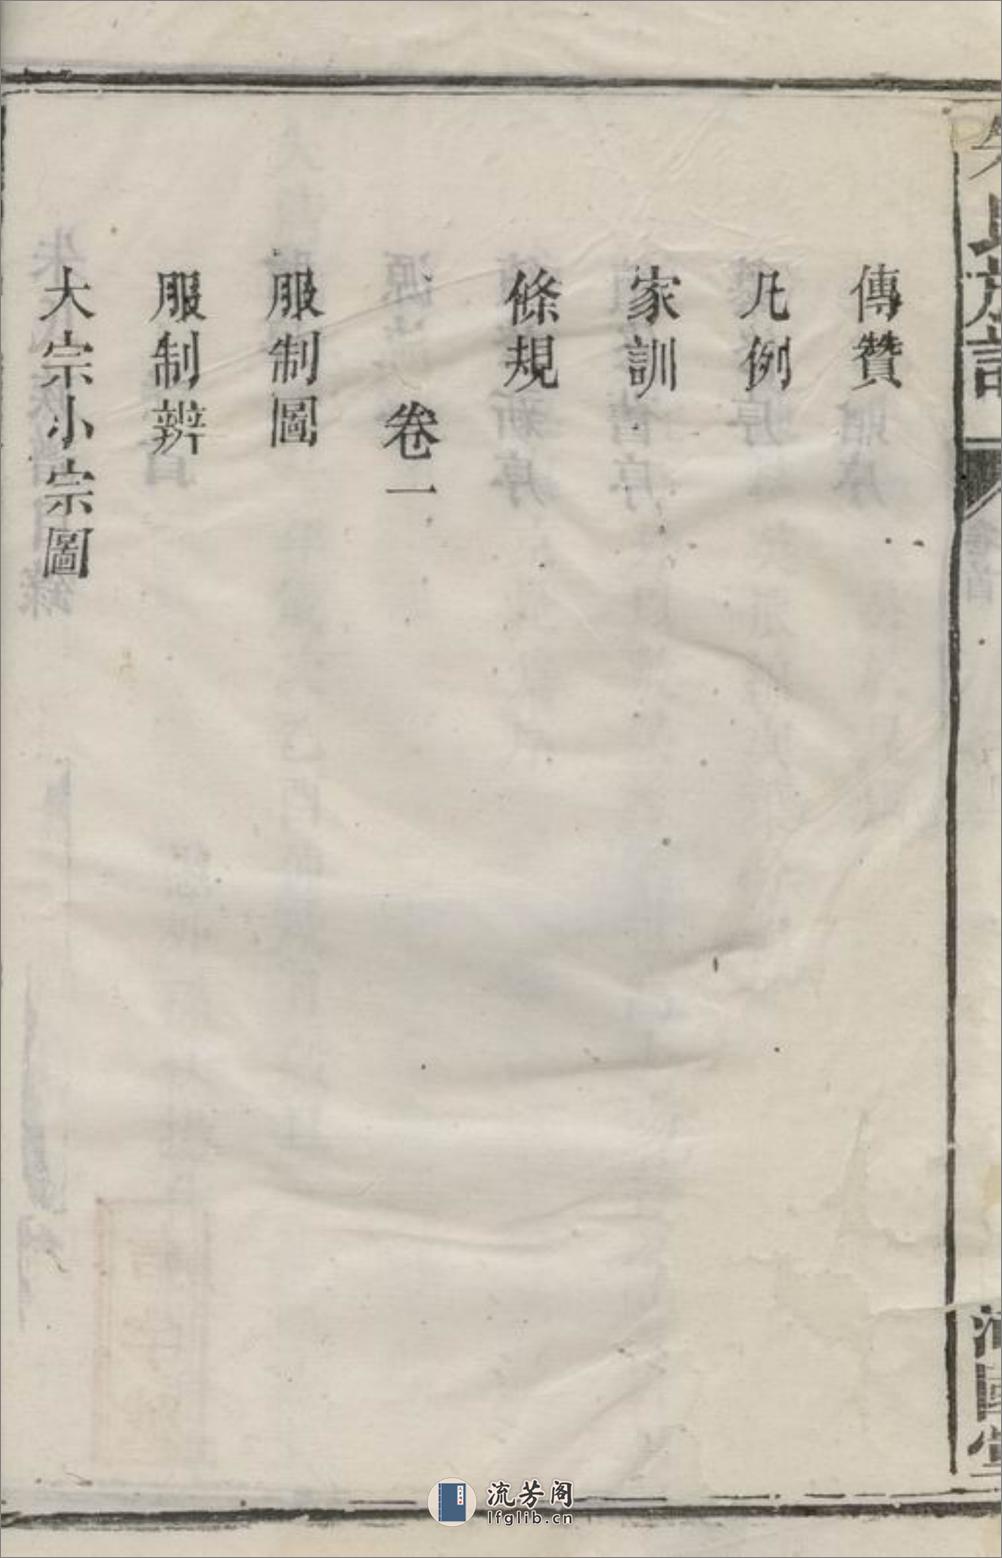 傳贊
凡例
家訓
條規
卷一
服制圖
服制辨
大宗小宗圖
流芳阁
lfglib.cn